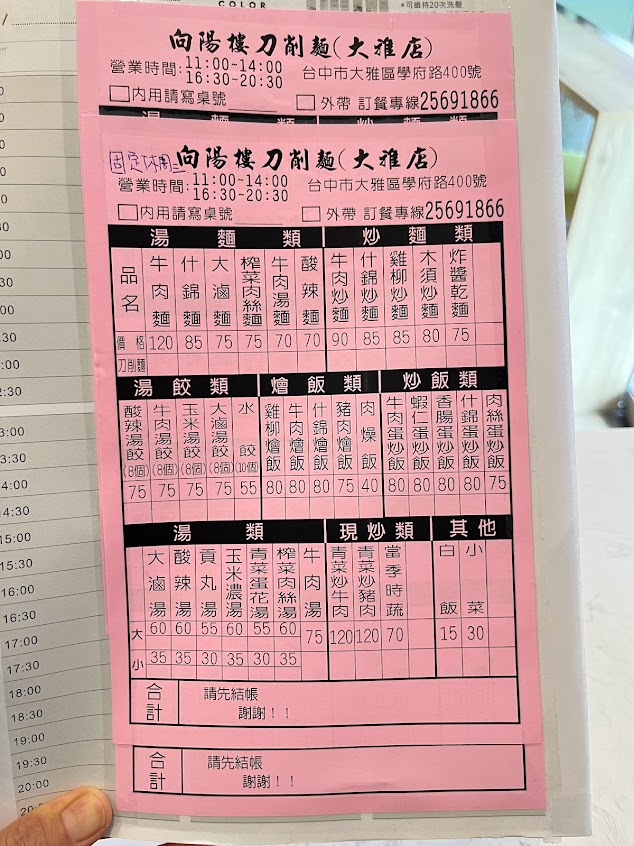 COLOR
•可維持20次洗髮
向陽樓刀削麵(大雅店)
營業時間: 11:00~14:00 台中市大雅區學府路400號
16:30~20:30
內用請寫桌號 外帶 訂餐專線25691866
湯麵類 炒麵類
固定休周二 向陽樓刀削麵(大雅店)
營業時間: 11:00~14:00 台中市大雅區學府路400號
16:30~20:30
內用請寫桌號 外帶 訂餐專線25691866
湯麵類 炒麵類
品名 牛肉麵 什錦麵 大滷麵 榨菜肉絲麵 牛肉湯麵 酸辣麵 牛肉炒麵 什錦炒麵 雞柳炒麵 木須炒麵 炸醬乾麵
價格 120 85 75 75 70 70 90 85 85 80 75
刀削麵
湯餃類 燴飯類 炒飯類
酸辣湯餃(8個) 牛肉湯餃(8個) 玉米湯餃(8個) 大滷湯餃(8個) 水餃(10個) 雞柳燴飯 牛肉燴飯 什錦燴飯 豬肉燴飯 肉燥飯 牛肉蛋炒飯 蝦仁蛋炒飯 香腸蛋炒飯 什錦蛋炒飯 肉絲蛋炒飯
75 75 75 75 55 80 80 80 75 40 80 80 80 80 75
湯類 現炒類 其他
大滷湯 酸辣湯 貢丸湯 玉米濃湯 青菜蛋花湯 榨菜肉絲湯 牛肉湯 青菜炒牛肉 青菜炒豬肉 當季時蔬 白飯 小菜
大 60 60 55 60 55 60 75 120 120 70 15 30
小 35 35 30 35 30 35
合計 請先結帳
謝謝!!
合計 請先結帳
謝謝!!
2:30
3:00
3:30
4:00
14:30
15:00
15:30
16:00
16:30
17:00
17:30
18:00
18:30
19:00
19:30
20:00